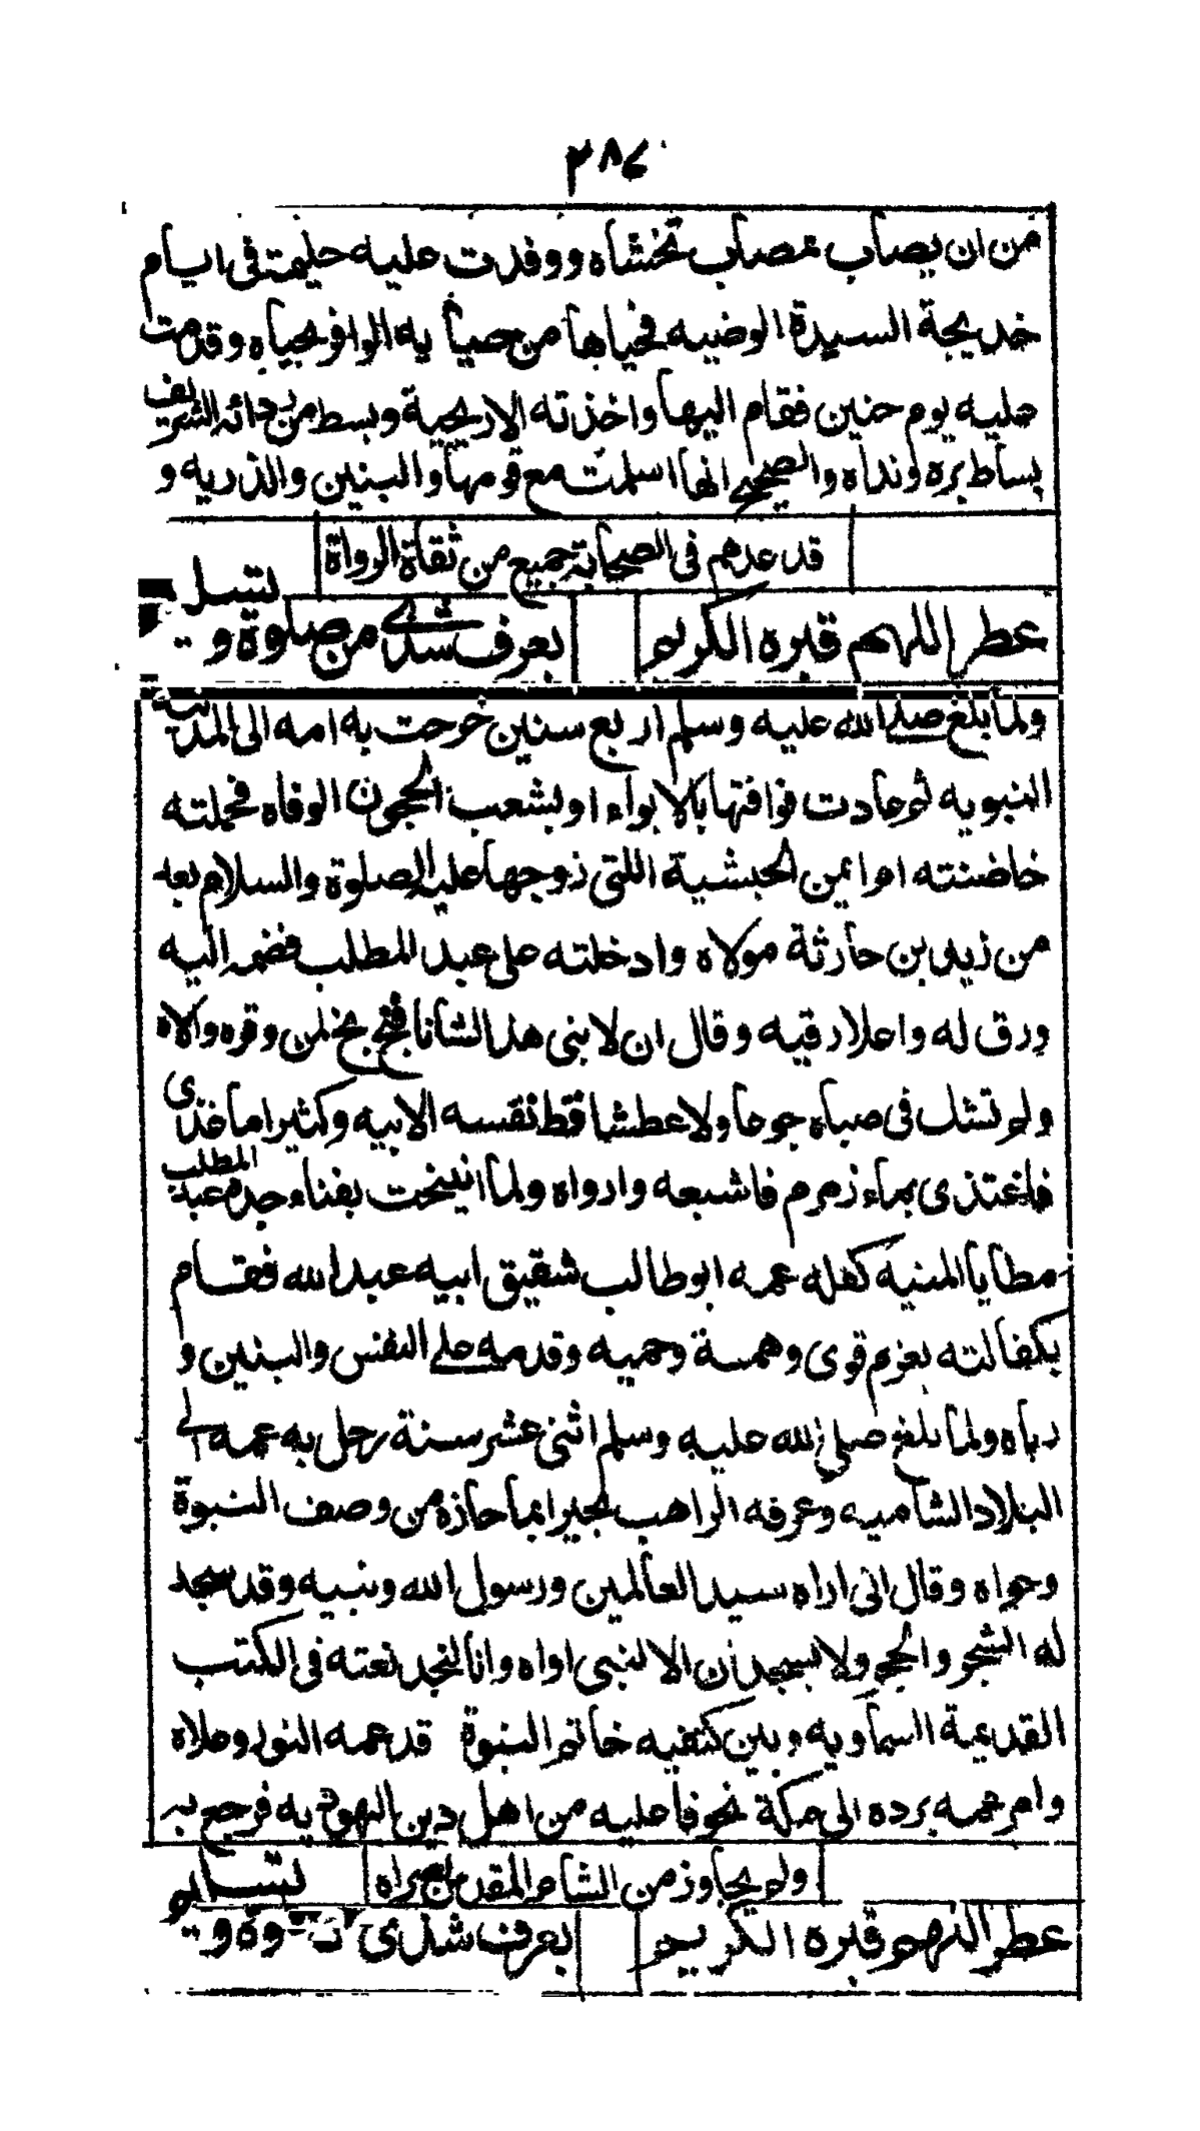 ٣٨٤
من ان يصاب بمصاب تخشاه ووفدت عليه حليمة فى ايام
خديجة السيدة الوضيه فحياها من حيا يه الوافر بحياه وقدمت
عليه يوم حنين فقام اليها واخذته الاريحية وبسط من ردائه الشريف
بساط بره ونداه والصحيح انها اسلمت مع قومها والبنين والذريه و
قد عدهم فى الصحابة جميع من ثقاة الرواة
عطر اللهم قبره الكريم بعرف شذى من صلوة وتسليم
ولما بلغ صلى الله عليه وسلم اربع سنين خرجت به امه الى المدينه
النبويه ثم عادت فوافتها بالابواء او بشعب الحجون الوفاه فحملته
خاضنته ام ايمن الحبشية اللتى زوجها عليه الصلوة والسلام بعد
من زيد بن حارثة مولاه وادخلته على عبد المطلب فضمه اليه
ورق له واعلا رقيه وقال ان لابنى هذا لشانا فبخ بخ لمن وقره والاه
ولم تشك فى صباه جوعا ولا عطشا قط نفسه الابيه وكثيرا ما غذى
فاغتذى بماء زمزم فاشبعه وارواه ولما انيخت بفناء جده عبد المطلب
مطايا المنيه كفله عمه ابوطالب شقيق ابيه عبد الله فقام
بكفالته بعزم قوى وهمة وحميه وقدمه على النفس والبنين و
رباه ولما بلغ صلى الله عليه وسلم اثنى عشر سنة رحل به عمه الى
البلاد الشاميه وعرفه الراهب بحيرا بما حازه من وصف النبوة
وحواه وقال انى اراه سيد العالمين ورسول الله ونبيه وقد سجد
له الشجر والحجر ولا يسجدان الا لنبى اواه وانا لنجد نعته فى الكتب
القديمة السماويه وبين كتفيه خاتم النبوة قد عمه النور وعلاه
وامر عمه برده الى مكة تخوفا عليه من اهل دين اليهود يه فرجع به
ولم يجاوز من الشام المقدس بصراه
عطر اللهم قبره الكريم بعرف شذى من صلوة وتسليم